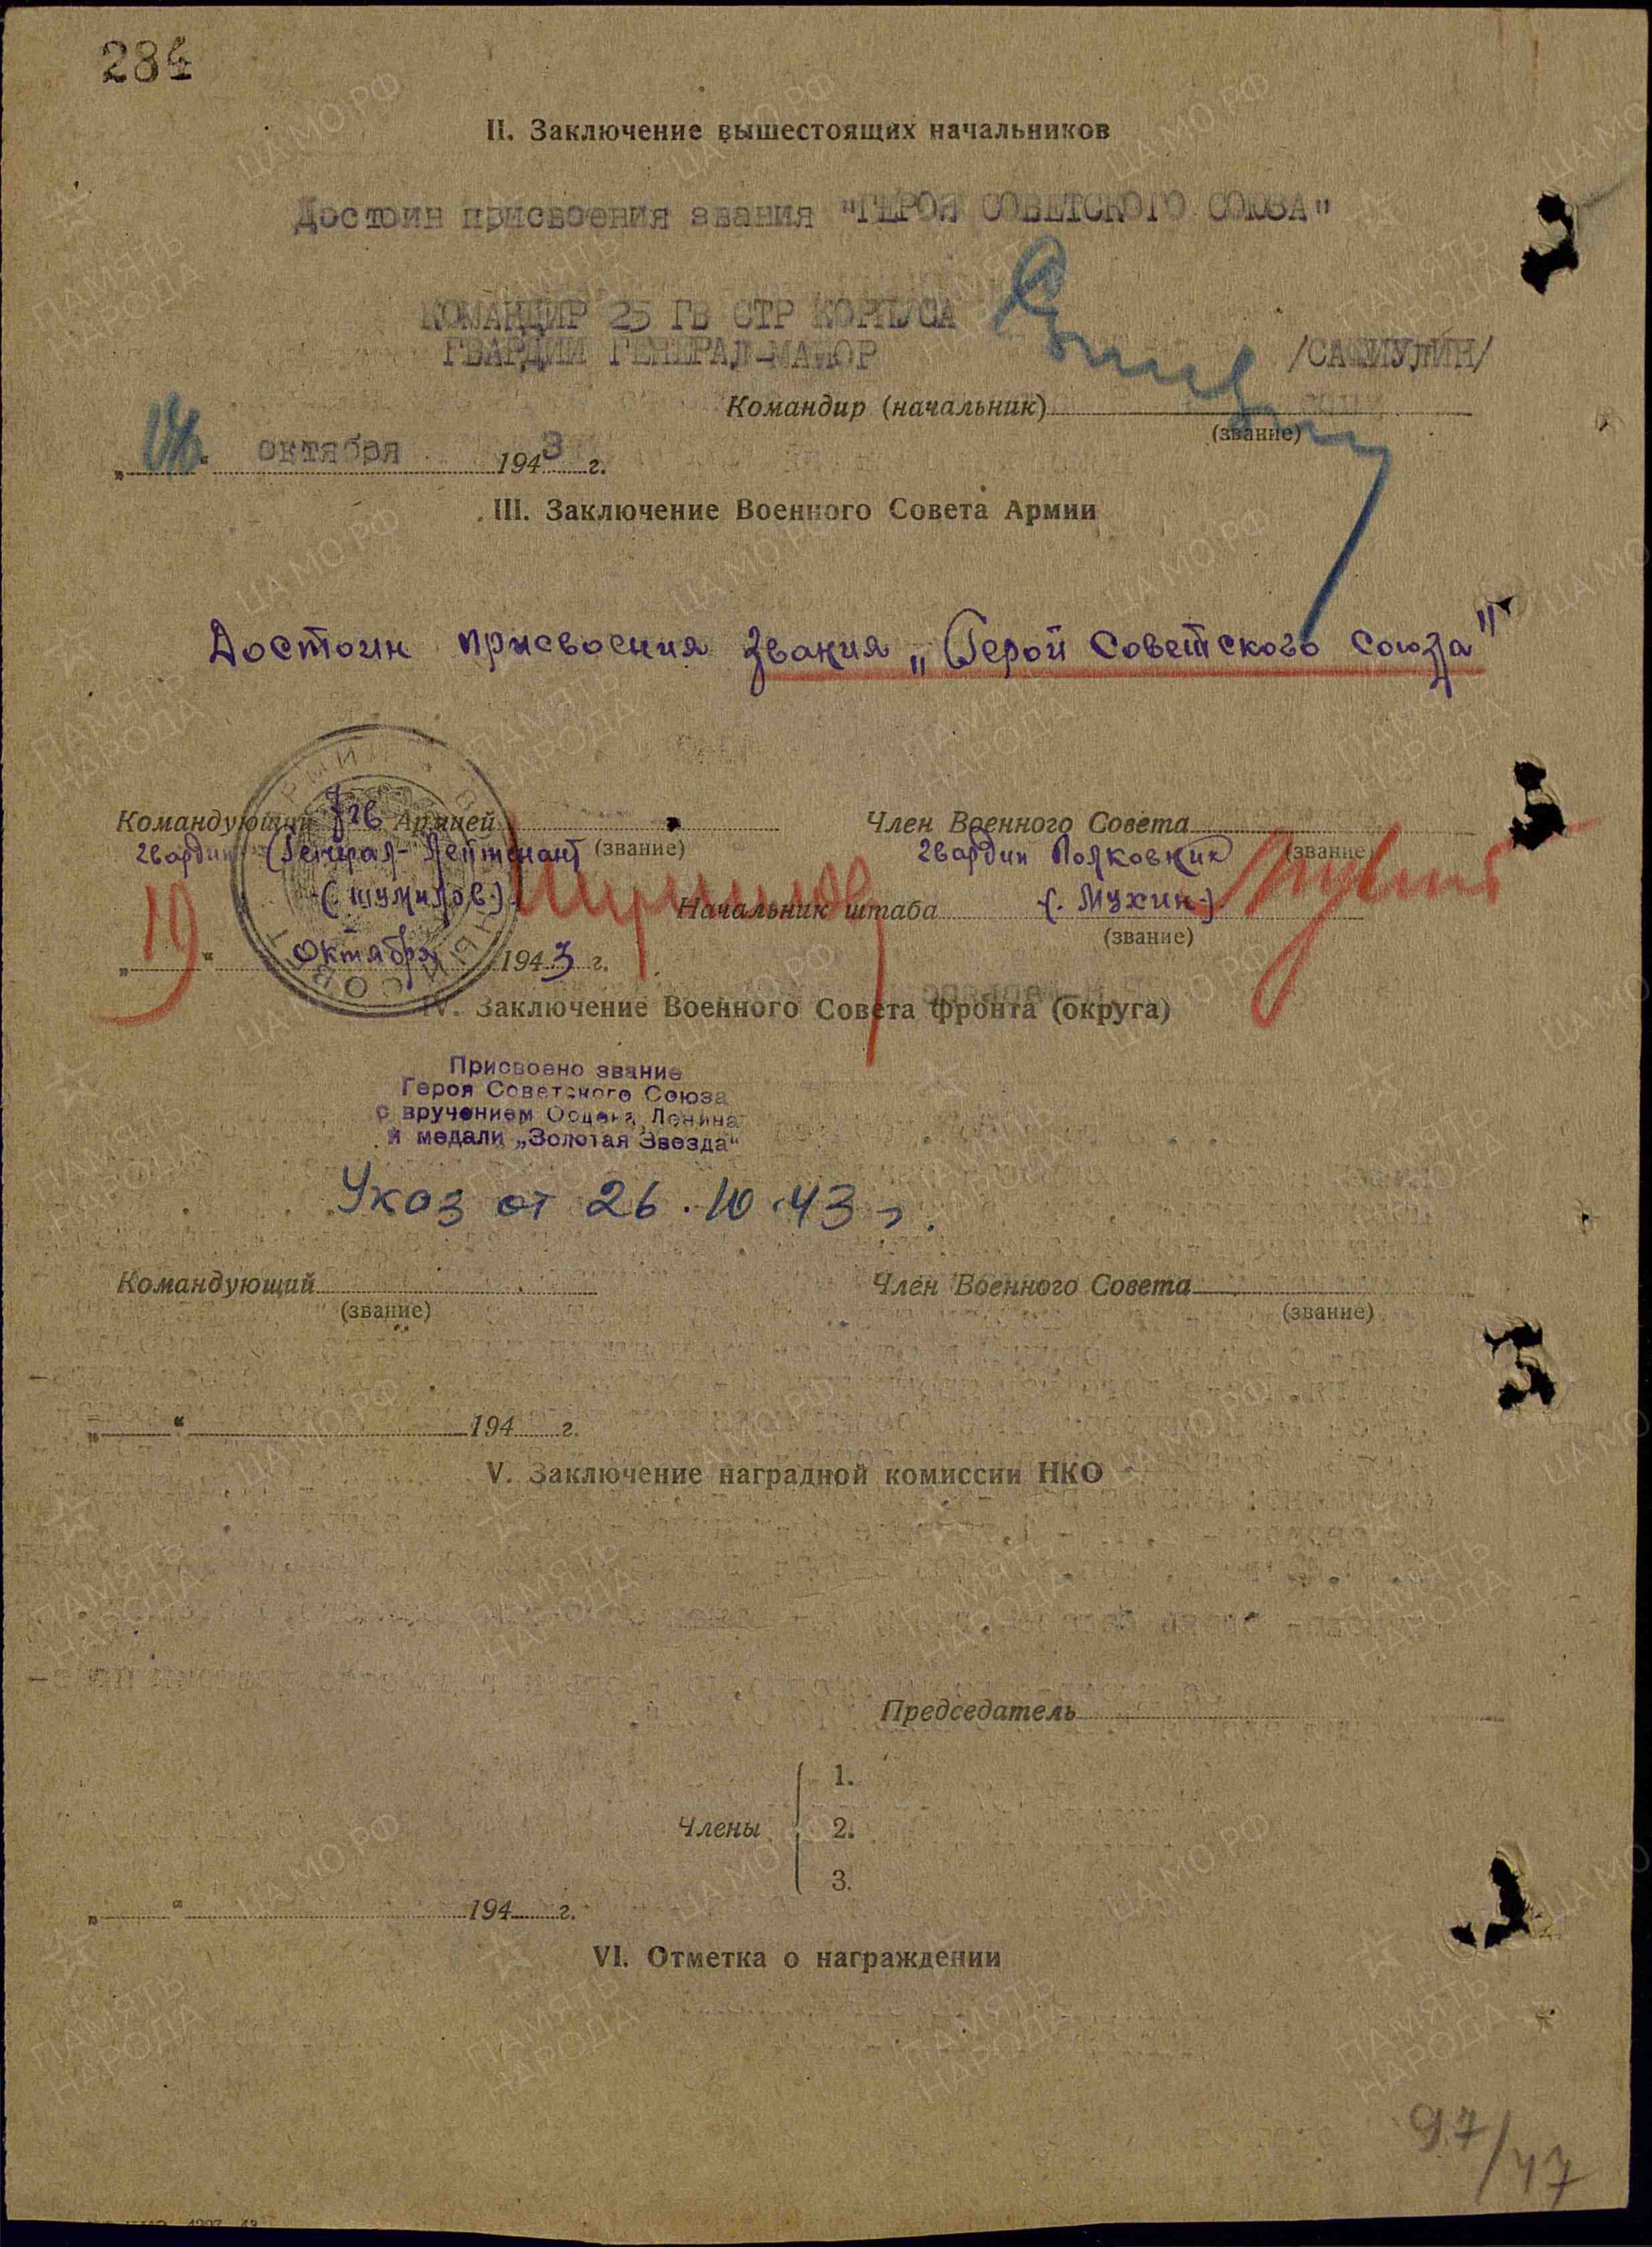 284
II. Заключение вышестоящих начальников
Достоин присвоения звания "ГЕРОЯ СОВЕТСКОГО СОЮЗА"
КОМАНДИР 25 ГВ СТР КОРПУСА
ГВАРДИИ ГЕНЕРАЛ-МАЙОР /САФИУЛИН/
Командир (начальник)
(звание)
„ “ октября 1943 г.
III. Заключение Военного Совета Армии
Достоин присвоения звания „Герой Советского Союза"
Командующий 7 гв Армией Член Военного Совета
гвардии Генерал-Лейтенант (звание) гвардии Полковник (звание)
(Шумилов) Начальник штаба (Мухин)
(звание)
„19“ Октября 1943 г.
IV. Заключение Военного Совета фронта (округа)
Присвоено звание
Героя Советского Союза
с вручением Ордена Ленина
и медали „Золотая Звезда“
Указ от 26.10.43 г.
Командующий Член Военного Совета
(звание) (звание)
„ “ 194 г.
V. Заключение наградной комиссии НКО
Председатель
1.
Члены 2.
3.
„ “ 194 г.
VI. Отметка о награждении
97/47